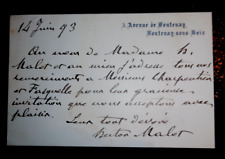 14 Juin 93
5 Avenue de Fontenay
Fontenay-sous-Bois
Au nom de Madame H.
Malot et au mien j'adresse tous nos
remerciements à Messieurs Charpentier
et Fasquelle pour leur gracieuse
invitation que nous acceptons avec
plaisir.
Leur tout dévoué
Hector Malot